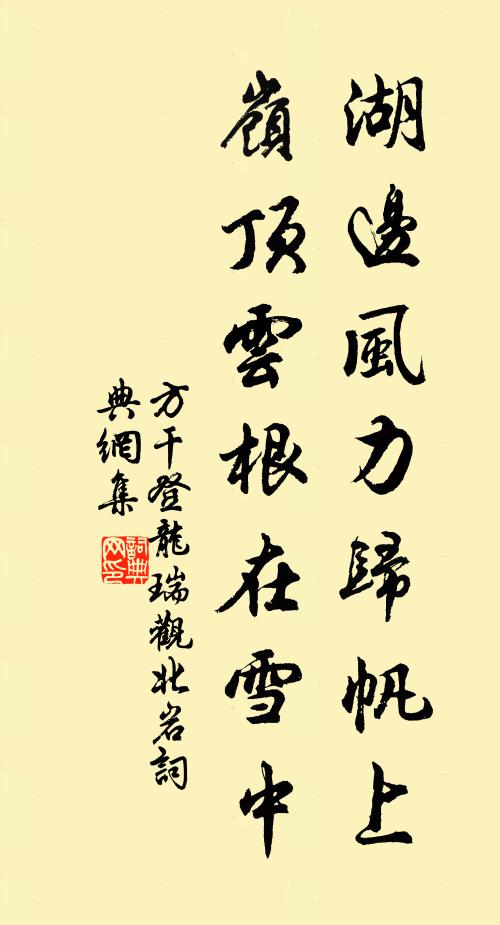 湖邊風力歸帆上
嶺頂雲根在雪中
方干登龍瑞觀北岩詞
典網集
詞典
网印